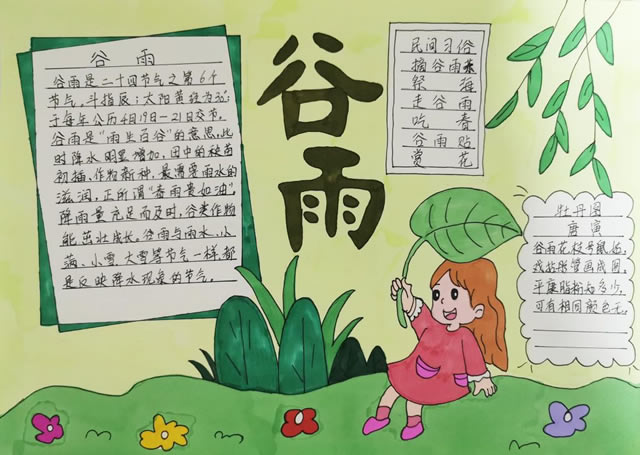 谷雨
谷雨是二十四节气之第6个
节气。斗指辰;太阳黄经为30°;
于每年公历4月19—21日交节。
谷雨是“雨生百谷”的意思,此
时降水明显增加,田中的秧苗
初插、作物新种,最需要雨水的
滋润,正所谓“春雨贵如油”。
降雨量充足而及时,谷类作物
能茁壮成长。谷雨与雨水、小
满、小雪、大雪等节气一样,都
是反映降水现象的节气。
谷雨
民间习俗
摘谷雨茶
祭海
走谷雨
吃春
谷雨贴
赏花
牡丹图
唐寅
谷雨花枝号鼠姑,
戏拈彤管画成图。
平康脂粉知多少,
可有相同颜色无。